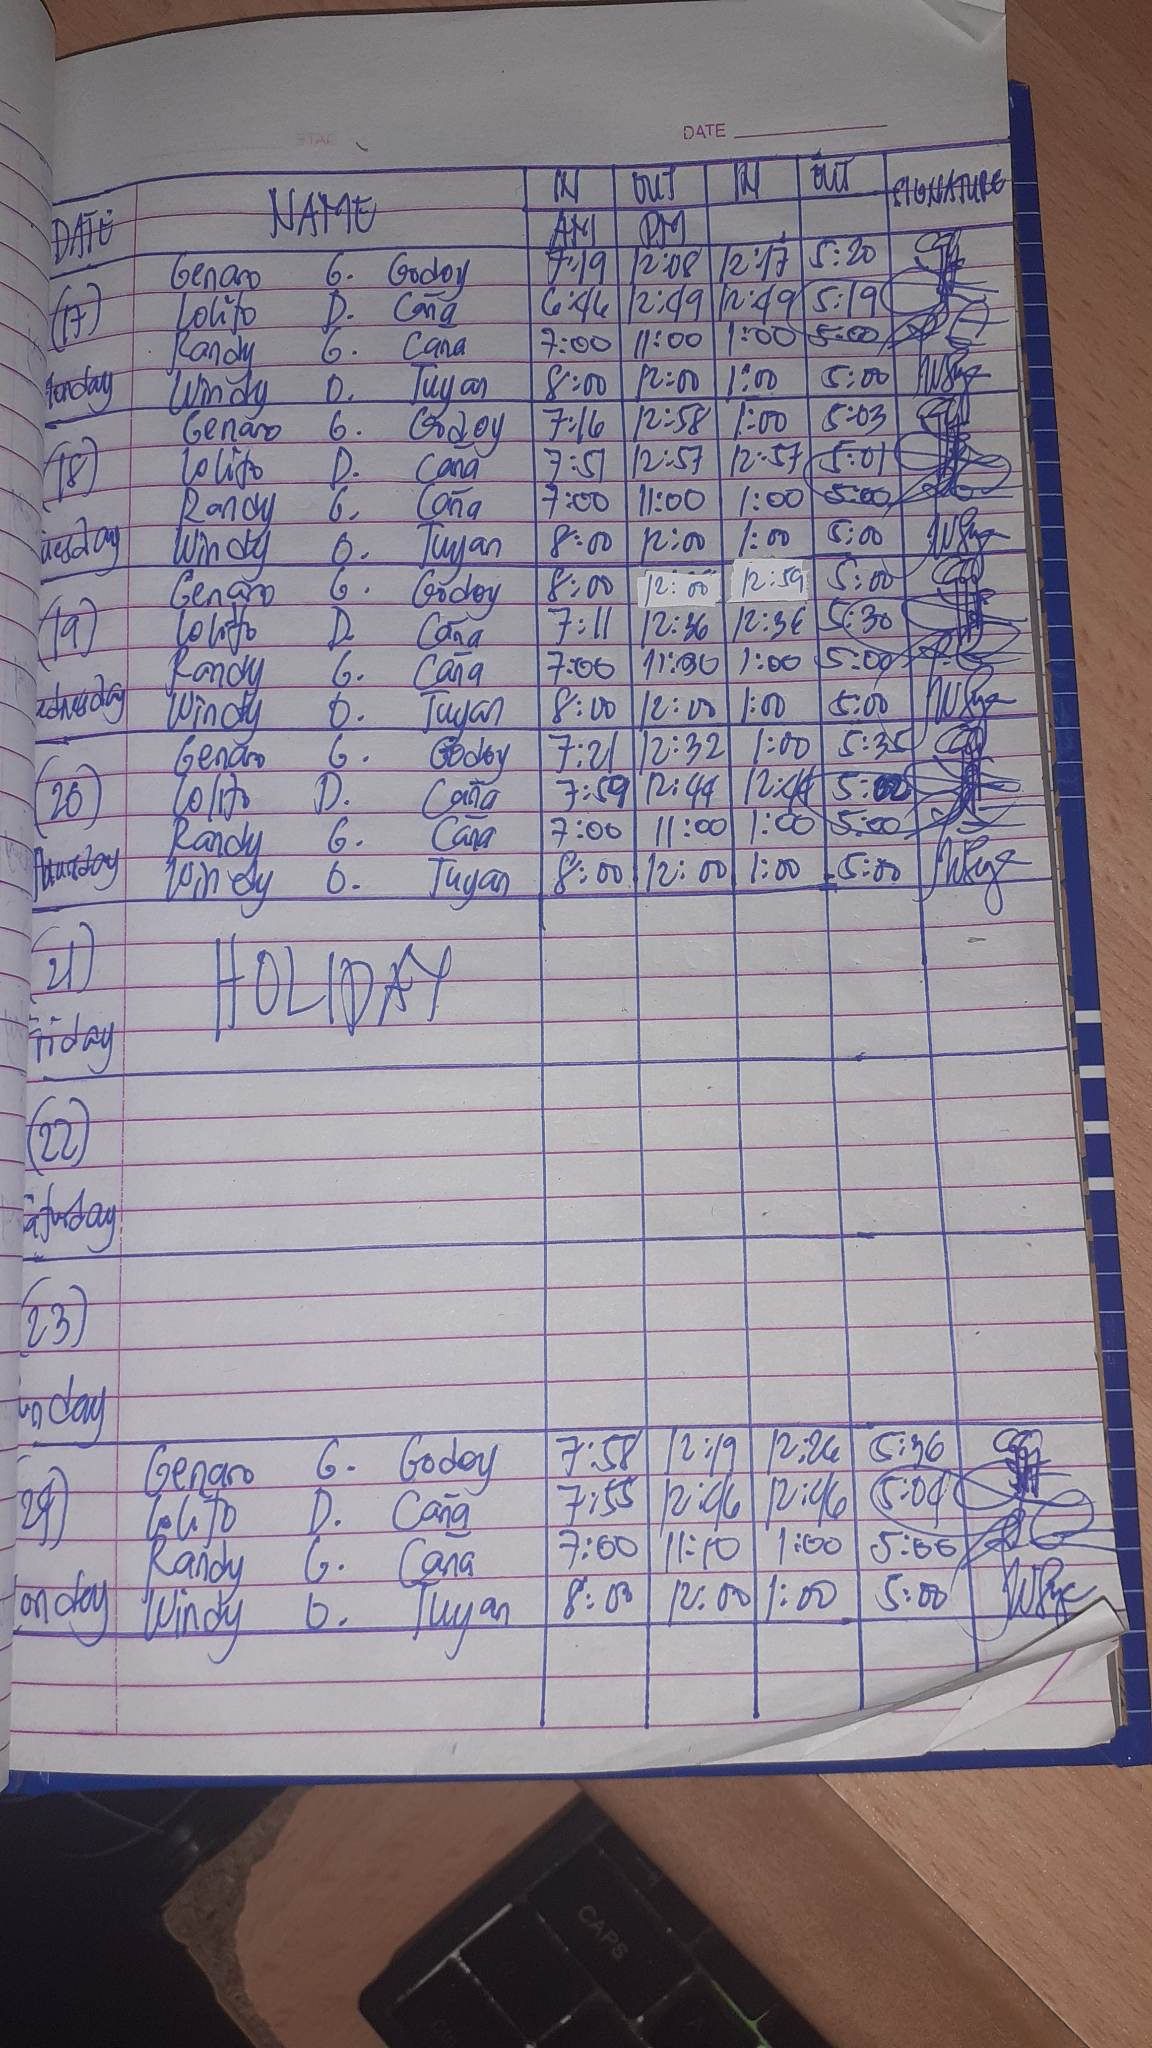 DATE
IN OUT IN OUT SIGNATURE
DATE NAME
AM PM
Genaro G. Godoy 7:19 12:08 12:17 5:20
(17) Lolito D. Caña 6:46 12:49 12:49 5:19
Randy G. Cana 7:00 11:00 1:00 5:00
onday Windy O. Tuyan 8:00 12:00 1:00 5:00
Genaro G. Godoy 7:16 12:58 1:00 5:03
(18) Lolito D. Caña 7:51 12:57 12:57 5:01
Randy G. Caña 7:00 11:00 1:00 5:00
uesday Windy O. Tuyan 8:00 12:00 1:00 5:00
Genaro G. Godoy 8:00 12:00 12:59 5:00
(19) Lolito D. Caña 7:11 12:36 12:36 5:30
Randy G. Caña 7:00 11:00 1:00 5:00
ednesday Windy O. Tuyan 8:00 12:00 1:00 5:00
Genaro G. Godoy 7:21 12:32 1:00 5:35
(20) Lolito D. Caña 7:59 12:44 12:44 5:00
Randy G. Caña 7:00 11:00 1:00 5:00
Windy O. Tuyan 8:00 12:00 1:00 5:00
(21) HOLIDAY
Friday
(22)
aturday
(23)
unday
Genaro G. Godoy 7:58 12:19 12:26 5:36
24) Lolito D. Caña 7:55 12:46 12:46 5:04
Randy G. Cana 7:00 11:10 1:00 5:00
onday Windy O. Tuyan 8:00 12:00 1:00 5:00
CAPS